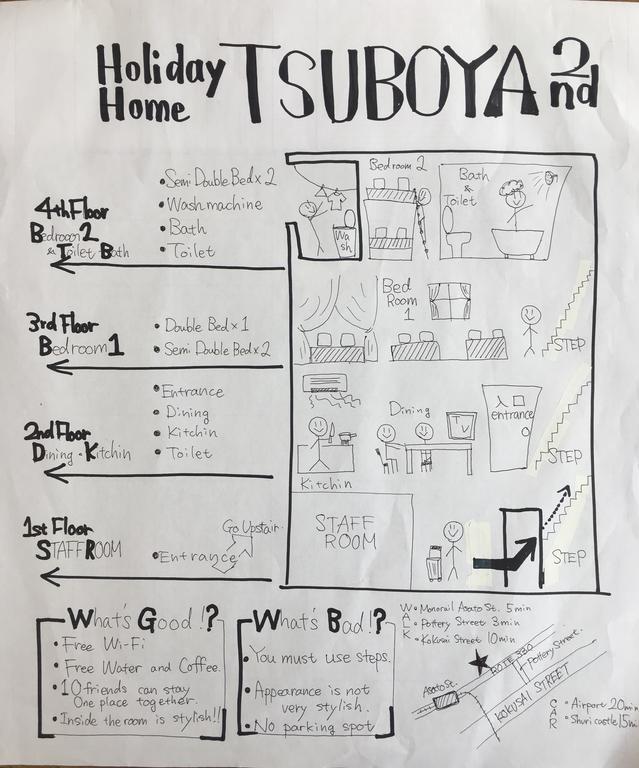 Holiday Home TSUBOYA 2nd
4th Floor
Bedroom 2
& Toilet Bath
• Semi Double Bed x 2
• Wash machine
• Bath
• Toilet
3rd Floor
Bedroom 1
• Double Bed x 1
• Semi Double Bed x 2
2nd Floor
Dining • Kitchin
• Entrance
• Dining
• Kitchin
• Toilet
1st Floor
STAFF ROOM
• Entrance
Go Upstair.
Wa
sh
Bedroom 2
Bath
&
Toilet
Bed
Room
1
STEP
Dining
TV
入口
entrance
STEP
Kitchin
STAFF
ROOM
STEP
What's Good!?
• Free Wi-Fi
• Free Water and Coffee.
• 10 friends can stay
One place together.
• Inside the room is stylish!!
What's Bad!?
• You must use steps.
• Appearance is not
very stylish.
• No parking spot
WALK
• Monorail Asato St. 5min
• Pottery Street 3min
• Kokusai Street 10min
Asato St.
ROUTE 330
Pottery Street.
KOKUSAI STREET
CAR
• Airport 20min
• Shuri castle 15mi